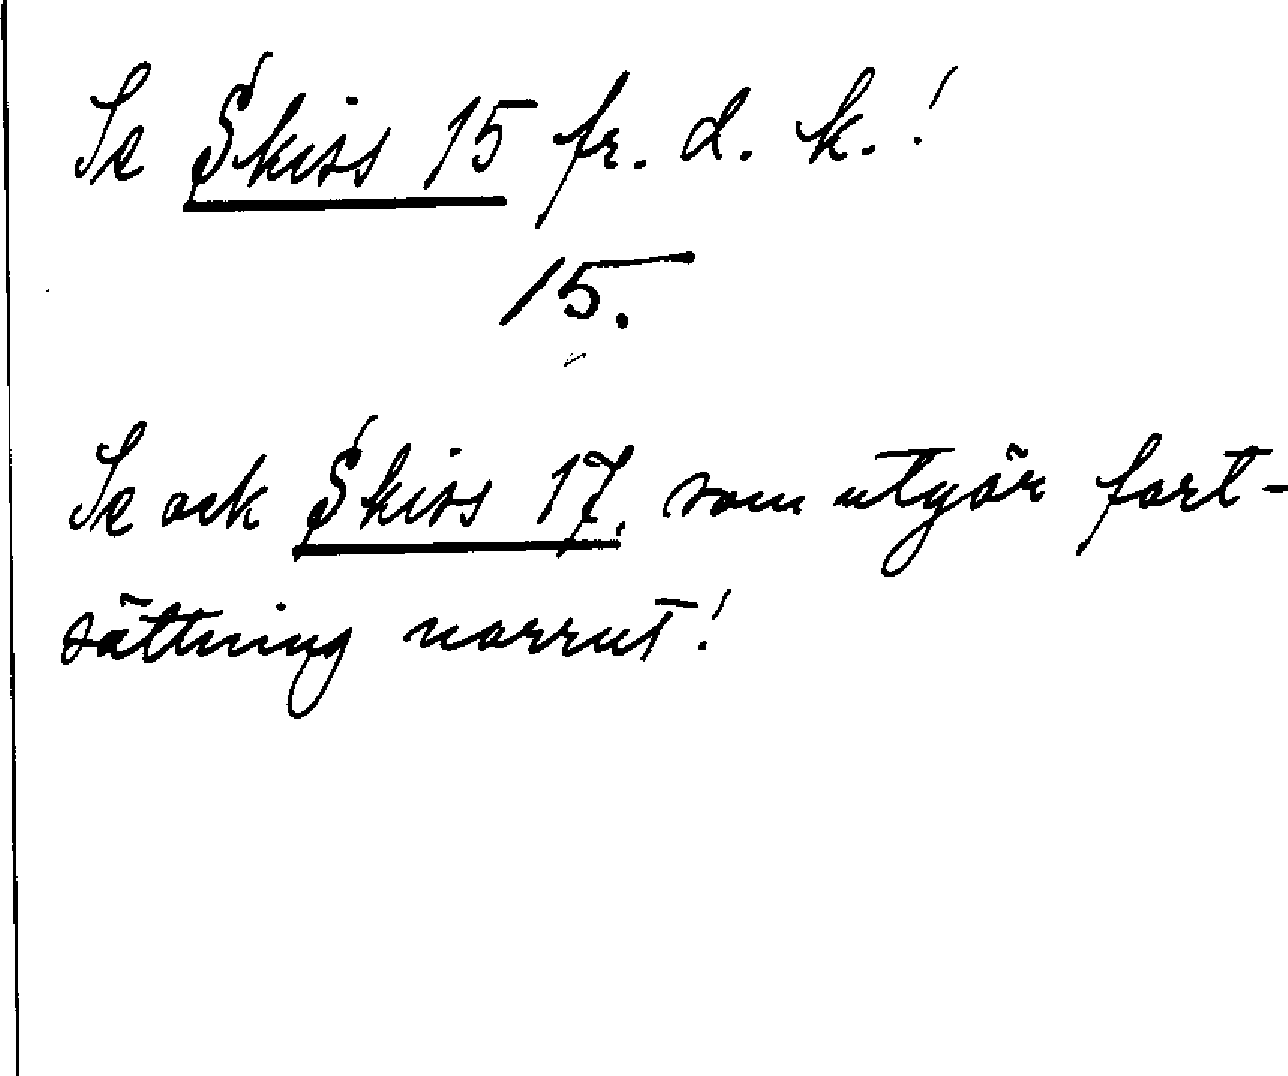 Se Skiss 15 fr. d. k.!
15.
Se ock Skiss 17. som utgör fort-
sättning norrut!